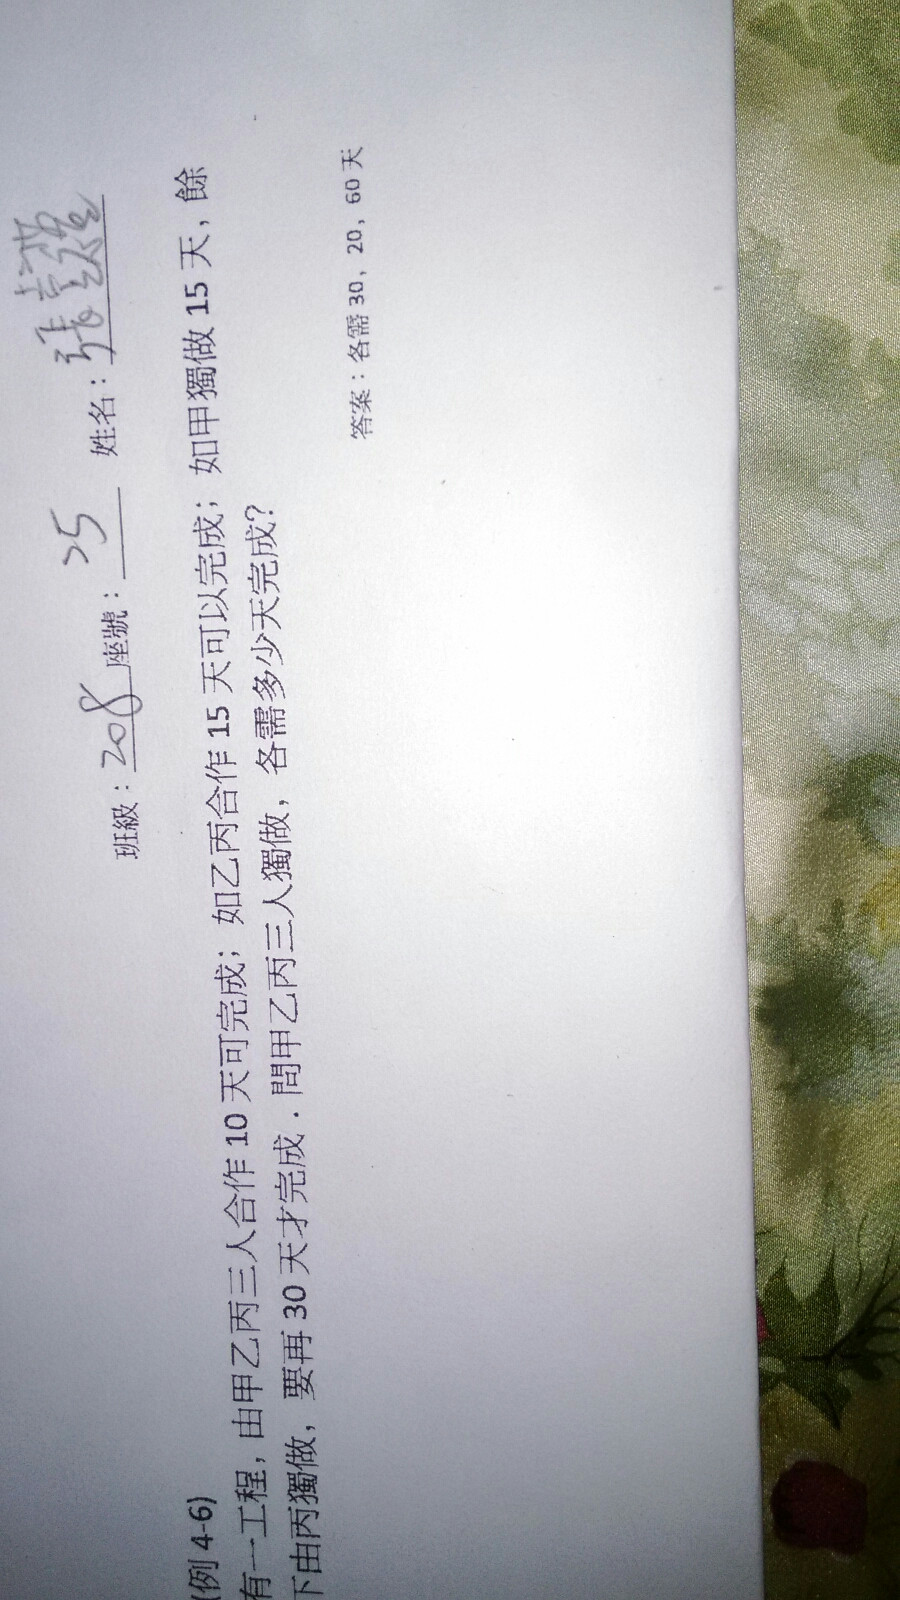 班級：208 座號：25 姓名：張
(例 4-6)
有一工程，由甲乙丙三人合作 10 天可完成；如乙丙合作 15 天可以完成；如甲獨做 15 天，餘
下由丙獨做，要再 30 天才完成．問甲乙丙三人獨做，各需多少天完成？
答案：各需 30，20，60 天